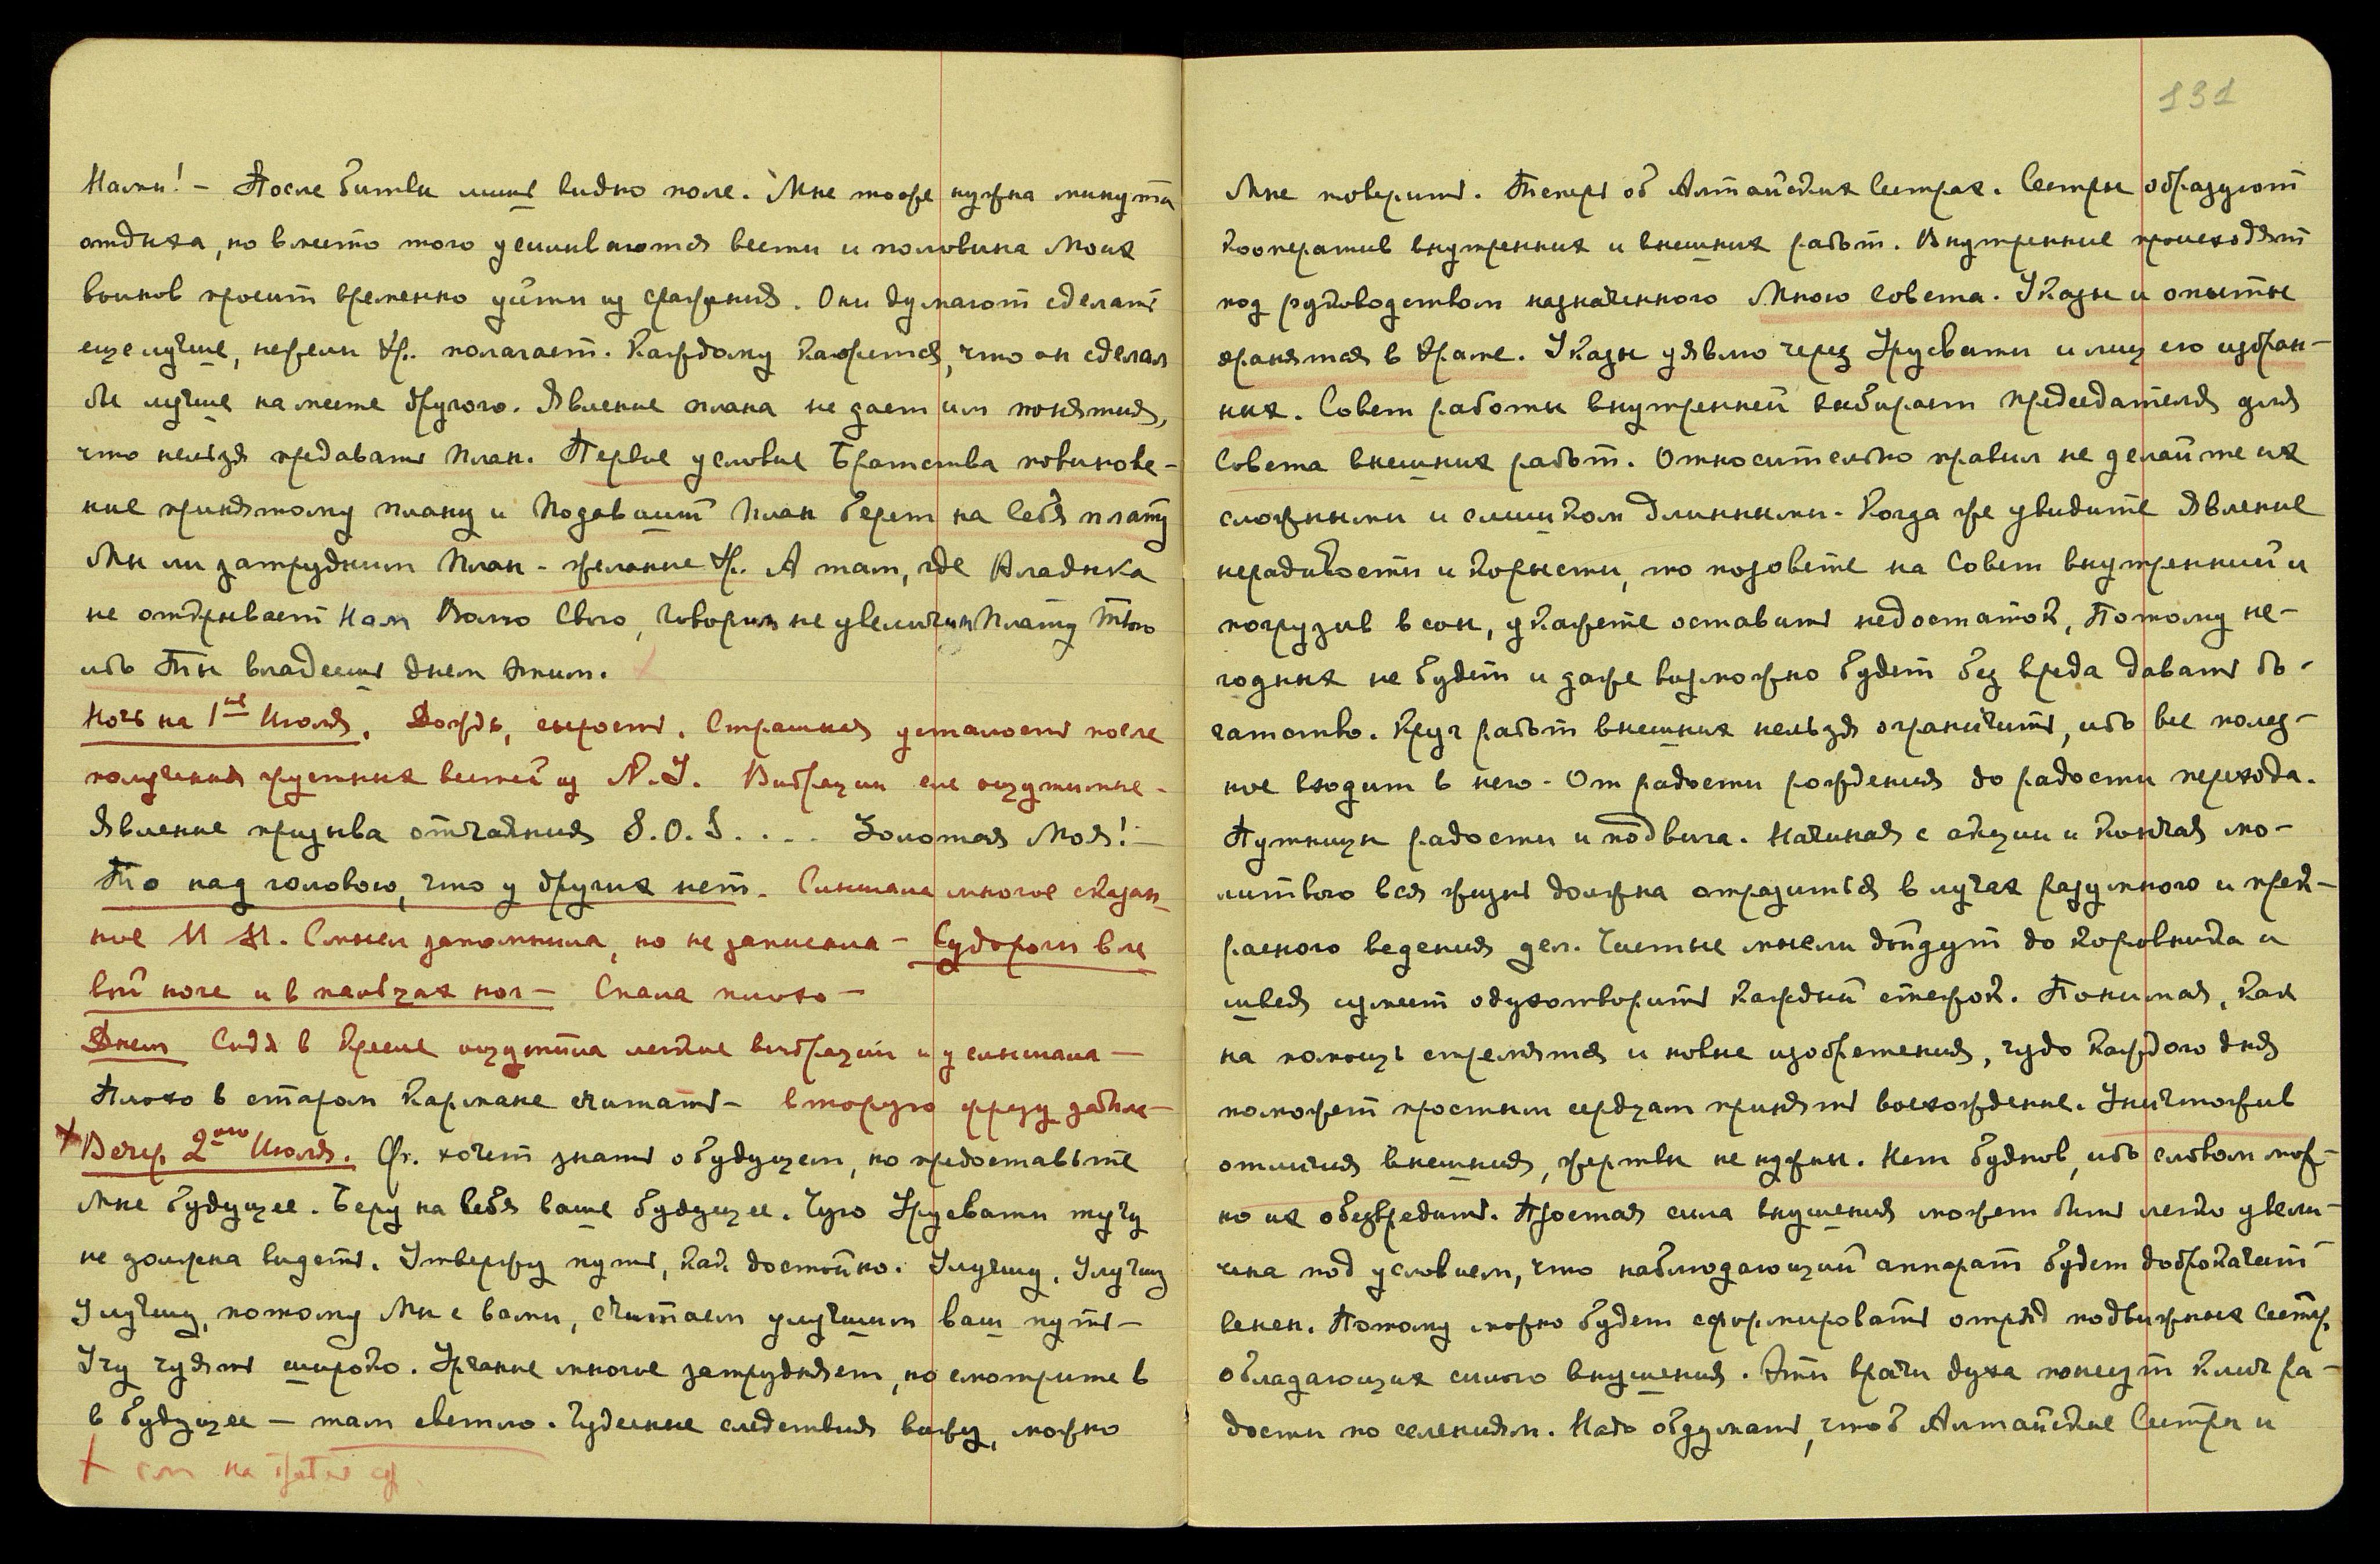 Нами! – После битвы лишь видно поле. Мне тоже нужна минута
отдыха, но вместо того усиливаются вести и половина Моих
воинов просит временно уйти из сражения. Они думают сделать
еще лучше, нежели Хр. полагает. Каждому кажется, что он сделал
бы лучше на месте другого. Явление плана не дает им понятия,
что нельзя предавать План. Первое условие Братства повинове-
ние принятому плану и Подавший План берет на Себя плату
Мы ли затрудним План – желание Хр. А там, где Владыка
не открывает Нам Волю Свою, говорим не увеличим Плату Твою
ибо Ты владеешь днем этим.
Ночь на 1ое Июля. Дождь, сырость. Страшная усталость после
получения грустных вестей из N.Y. Вибрации еле ощутимые –
Явление призыва отчаяния S.O.S. . . . Золотая Моя! –
То над головою, что у других нет. Слышала многое сказан-
ное М М. Смысл запомнила, но не записала – Судороги в ле
вой ноге и в пальцах ног – Спала плохо –
Днем Сидя в кресле ощутила легкие вибрации и услышала –
Плохо в старом кармане считать – вторую фразу забыла –
+ Вечер 2ого Июля. Фр. хочет знать о будущем, но предоставьте
Мне будущее. Беру на Себя ваше будущее. Чую Урусвати тучу
не должна видеть. Утвержу путь, как достойно. Улучшу, Улучшу
Улучшу, потому Мы с вами, считаем улучшим ваш путь –
Учу чуять широко. Урчание многое затрудняет, но смотрите в
в будущее – там светло. Чудесные следствия вижу, можно
+ см на
131
Мне поверить. Теперь об Алтайских Сестрах. Сестры образуют
кооператив внутренних и внешних работ. Внутренние происходят
под руководством назначенного Мною Совета. Указы и опыты
хранятся в Храме. Указы уявлю через Урусвати и лиц ею избран-
ных. Совет работы внутренней выбирает председателя для
Совета внешних работ. Относительно правил не делайте их
сложными и слишком длинными. Когда же увидите явление
нерадивости и корысти, то позовете на Совет внутренний и
погрузив в сон, укажете оставить недостаток, Потому не-
годных не будет и даже возможно будет без вреда давать бо-
гатство. Круг работ внешних нельзя ограничить, ибо все полез-
ное входит в него. От радости рождения до радости перехода.
Путницы радости и подвига. Начиная с акции и кончая мо-
литвою вся жизнь должна отразиться в лучах разумного и прек-
расного ведения дел. Чистые мысли дойдут до коровника и
швея сумеет одухотворить каждый стежок. Понимая, как
на помощь стремятся и новые изобретения, чудо каждого дня
поможет простым сердцам принять восхождение. Уничтожив
отличия внешния, жертвы не нужны. Нет будней, ибо словом мож-
но их обезвредить. Простая сила внушения может быть легко увели-
чена под условием, что наблюдающий аппарат будет доброкачест
венен. Потому можно будет сформировать отряд подвижных Сестр,
обладающих силою внушения. Эти врачи духа понесут клич ра-
дости по селениям. Надо обдумать, чтоб Алтайские Сестры и